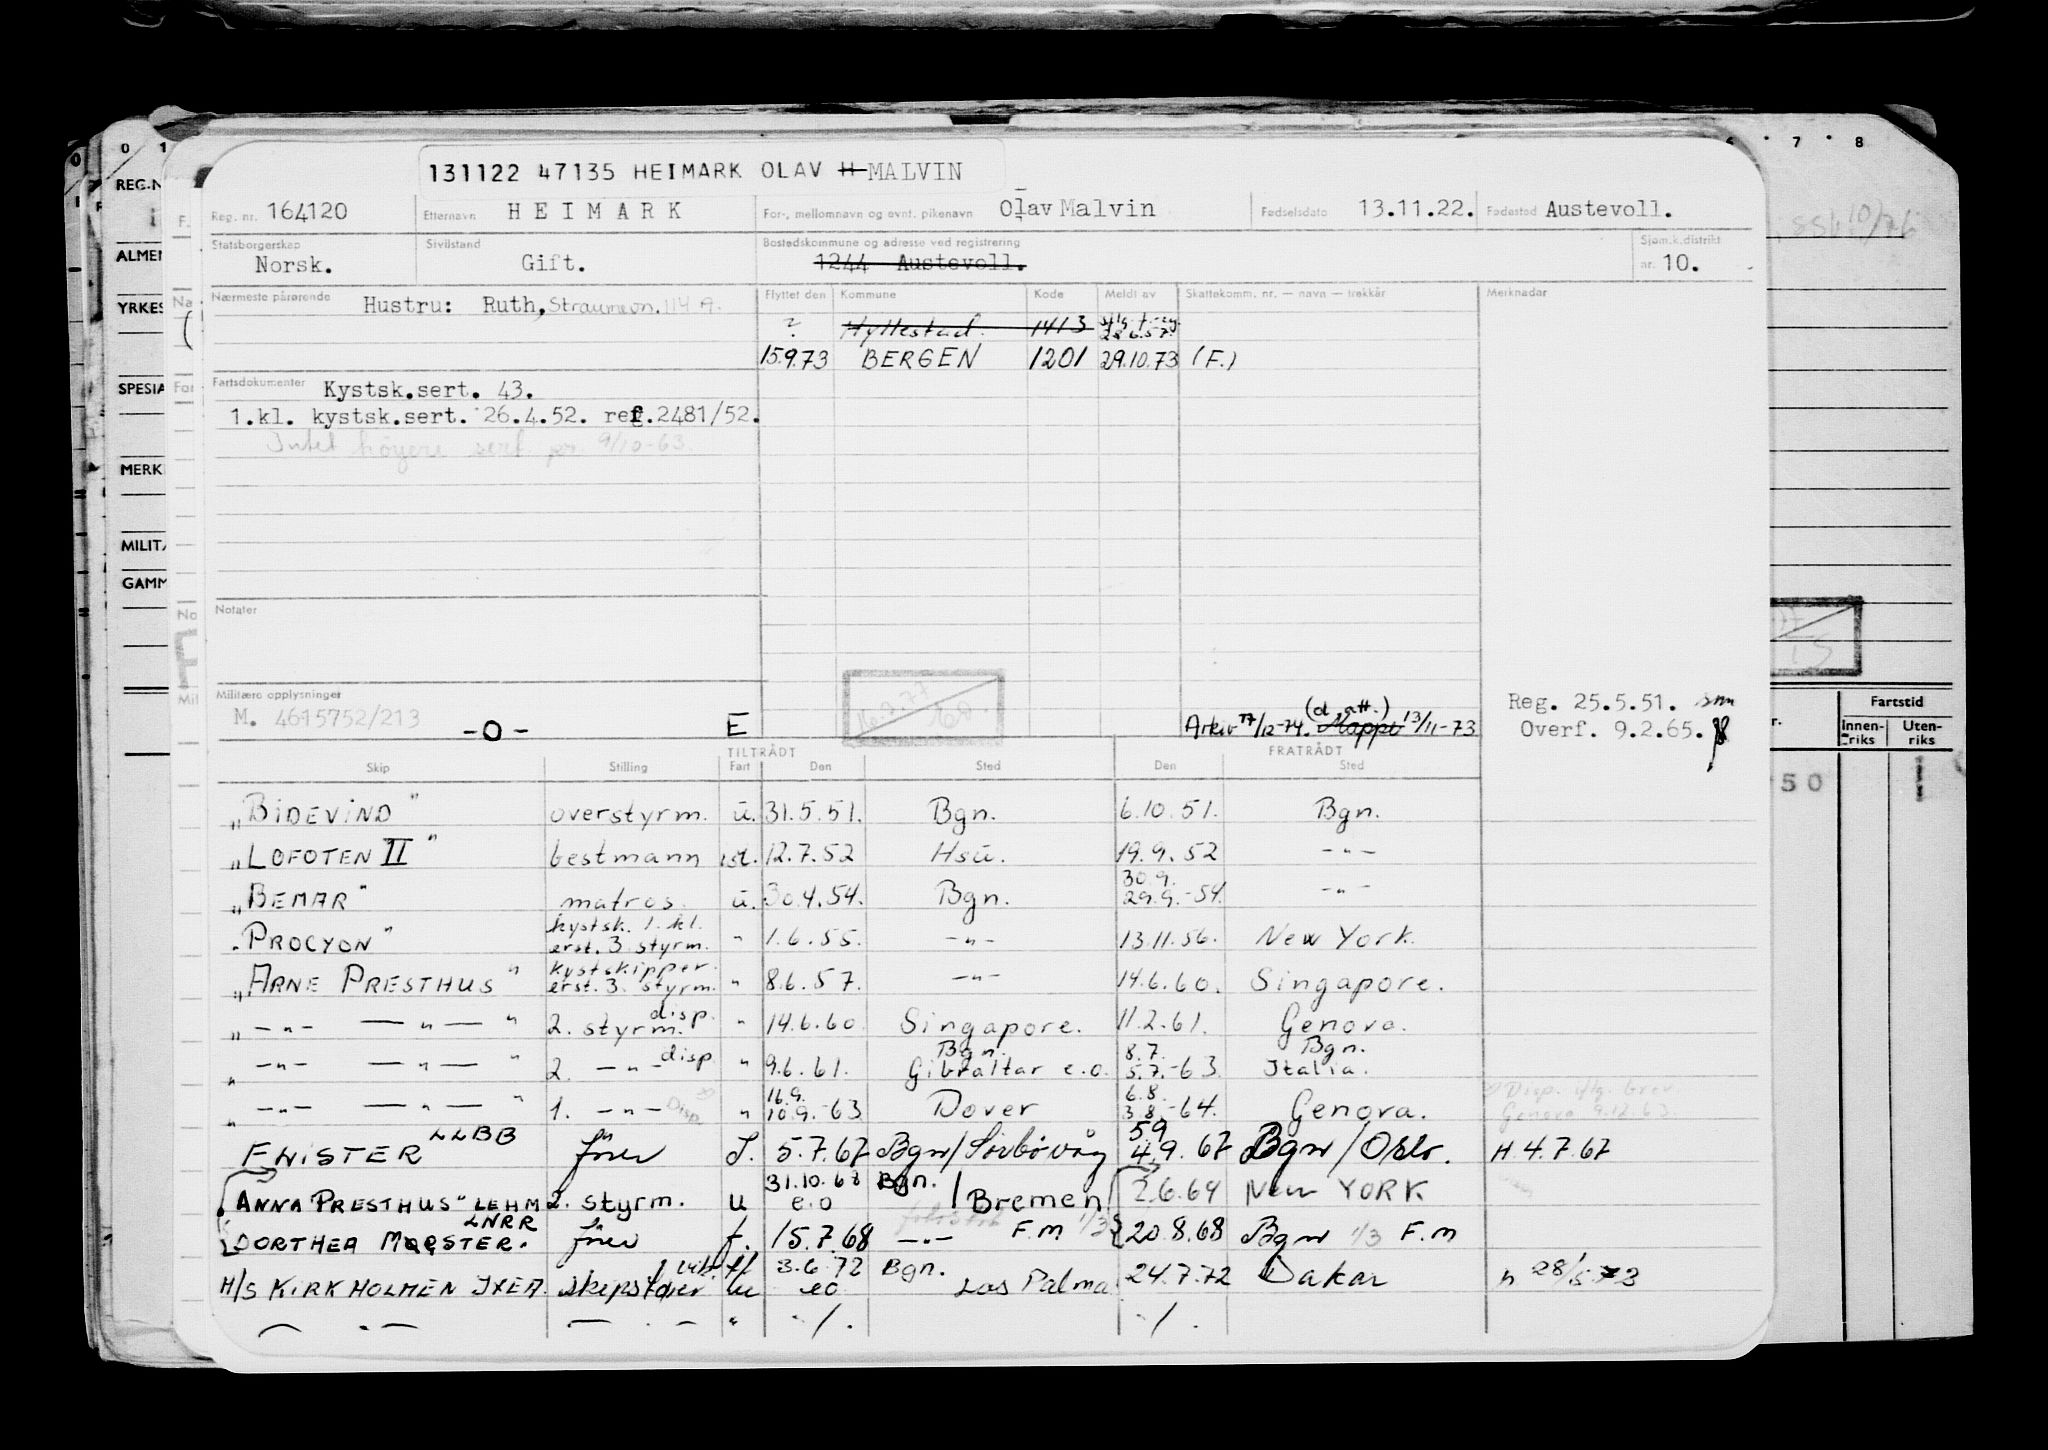 131122 47135 HEIMARK OLAV H MALVIN
Reg. nr. 164120 Etternavn HEIMARK For-, mellomnavn og evnt. pikenavn Olav Malvin Fødselsdato 13.11.22. Fødested Austevoll.
Statsborgerskap Norsk. Sivilstand Gift. Bostedskommune og adresse ved registrering 1244 Austevoll. Sjøm.k.distrikt nr. 10.
Nærmeste pårørende Hustru: Ruth, Straumevn. 114 A. Flyttet den Kommune Kode Meldt av Skattekomm. nr. — navn — trekkår Merknader
? Hyllestad. 1413 22.6.57.
15.9.73 BERGEN 1201 29.10.73 (F.)
Fartsdokumenter Kystsk.sert. 43.
1.kl. kystsk.sert. 26.4.52. ref.2481/52.
Intet høyere sert pr. 9/10-63.
Notater
Militære opplysninger
M. 4615752/213 -0- E
Arkiv 17/12-74. (d. att.) Mappe 13/11-73
Reg. 25.5.51.
Overf. 9.2.65.
TILTRÅDT FRATRÅDT
Skip Stilling Fart Den Sted Den Sted
„BIDEVIND" overstyrm. u. 31.5.51. Bgn. 6.10.51. Bgn.
„LOFOTEN II" bestmann ist. 12.7.52 Hsu. 19.9.52 -"-
„BEMAR" matros. u. 30.4.54. Bgn. 30.9. 29.9.-54. -"-
„PROCYON" kystsk. 1. kl. erst. 3 styrm. " 1.6.55. -"- 13.11.56. New York.
„ARNE PRESTHUS" kystskipper. erst. 3. styrm. " 8.6.57. -"- 14.6.60. Singapore.
„-"- -"-" 2. styrm. disp. " 14.6.60. Singapore. 11.2.61. Genova.
„-"- -"-" 2. -"- disp " 9.6.61. Bgn. Gibraltar e.o. 8.7. 5.7.-63. Bgn. Italia.
„-"- -"-" 1. -"- Disp. " 16.9. 10.9.-63 Dover 6.8. 3.8.-64. Genova. Disp. iflg. brev Genova 9.12.63.
FNISTER LLBB fører 5.7.67 Bgn/Sørbøvåg 5.9 4.9.67 Bgn/Oslo. H.4.7.67
ANNA PRESTHUS" LEHM 2. styrm. u 31.10.68 e.o Bgn. / Bremen 2.6.69 New YORK
DORTHEA MØGSTER. LNRR fører f. 15.7.68 -"- F.m 1/3 20.8.68 Bgn 1/3 F.m
M/S KIRKHOLMEN JXEA. skipsfører u 3.6.72 eo Bgn. Las Palma 24.7.72 Dakar n 28/5 73
— " — — . — " ./. ./.
REG.N
ALMEN
YRKES
SPESIA
MERK
MILITÆ
GAMM
6 7 8
Fartstid
Innen-riks Uten-riks
50